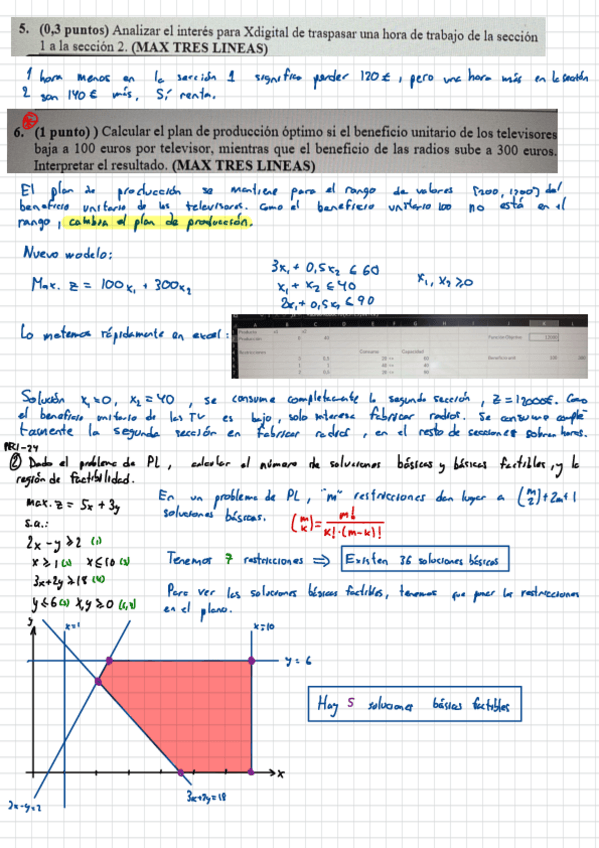 5. (0,3 puntos) Analizar el interés para Xdigital de traspasar una hora de trabajo de la sección
1 a la sección 2. (MAX TRES LINEAS)
1 hora menos en la sección 1 significa perder 120€, pero una hora más en la sección
2 son 140€ más, Sí renta.
6. (1 punto) ) Calcular el plan de producción óptimo si el beneficio unitario de los televisores
baja a 100 euros por televisor, mientras que el beneficio de las radios sube a 300 euros.
Interpretar el resultado. (MAX TRES LINEAS)
El plan de producción se mantiene para el rango de valores [200, 1200] del
beneficio unitario de los televisores. Como el beneficio unitario 100 no está en el
rango, cambia el plan de producción.
Nuevo modelo:
Max. z = 100x₁ + 300x₂
3x₁ + 0,5x₂ ≤ 60
x₁ + x₂ ≤ 40
2x₁ + 0,5x₂ ≤ 90
x₁, x₂ ≥ 0
Lo metemos rápidamente en excel:
Solución x₁=0, x₂=40, se consume completamente la segunda sección, z=12000€. Como
el beneficio unitario de las TV es bajo, solo interesa fabricar radios. Se consume comple-
tamente la segunda sección en fabricar radios, en el resto de secciones sobran horas.
PR1-24
② Dado el problema de PL, calcular el número de soluciones básicas y básicas factibles, y la
región de factibilidad.
max. z = 5x + 3y
s.a.:
2x - y ≥ 2 (1)
x ≥ 1 (2) x ≤ 10 (3)
3x+2y ≥ 18 (4)
y ≤ 6 (5) x,y ≥ 0 (6,7)
En un problema de PL, "m" restricciones dan lugar a (m 2) + 2m + 1
soluciones básicas. (m k) = m! / k!·(m-k)!
Tenemos 7 restricciones ⇒ Existen 36 soluciones básicas
Para ver las soluciones básicas factibles, tenemos que poner las restricciones
en el plano.
y
x=1
x=10
y=6
Hay 5 soluciones básicas factibles
x
2x-y=2
3x+2y=18